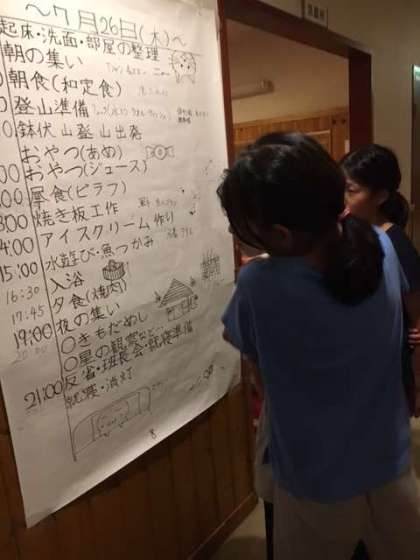 ～7月26日(木)～
起床・洗面・部屋の整理
朝の集い
朝食(和定食)
登山準備
鉢伏山登山出発
おやつ(あめ)
おやつ(ジュース)
昼食(ピラフ)
焼き板工作
アイスクリーム作り
15:00 水遊び・魚つかみ
16:30 入浴
17:45 夕食(焼肉)
19:00 夜の集い
20:00 ○きもだめし
○星の観察など…
21:00 反省・班長会・就寝準備
就寝・消灯
8